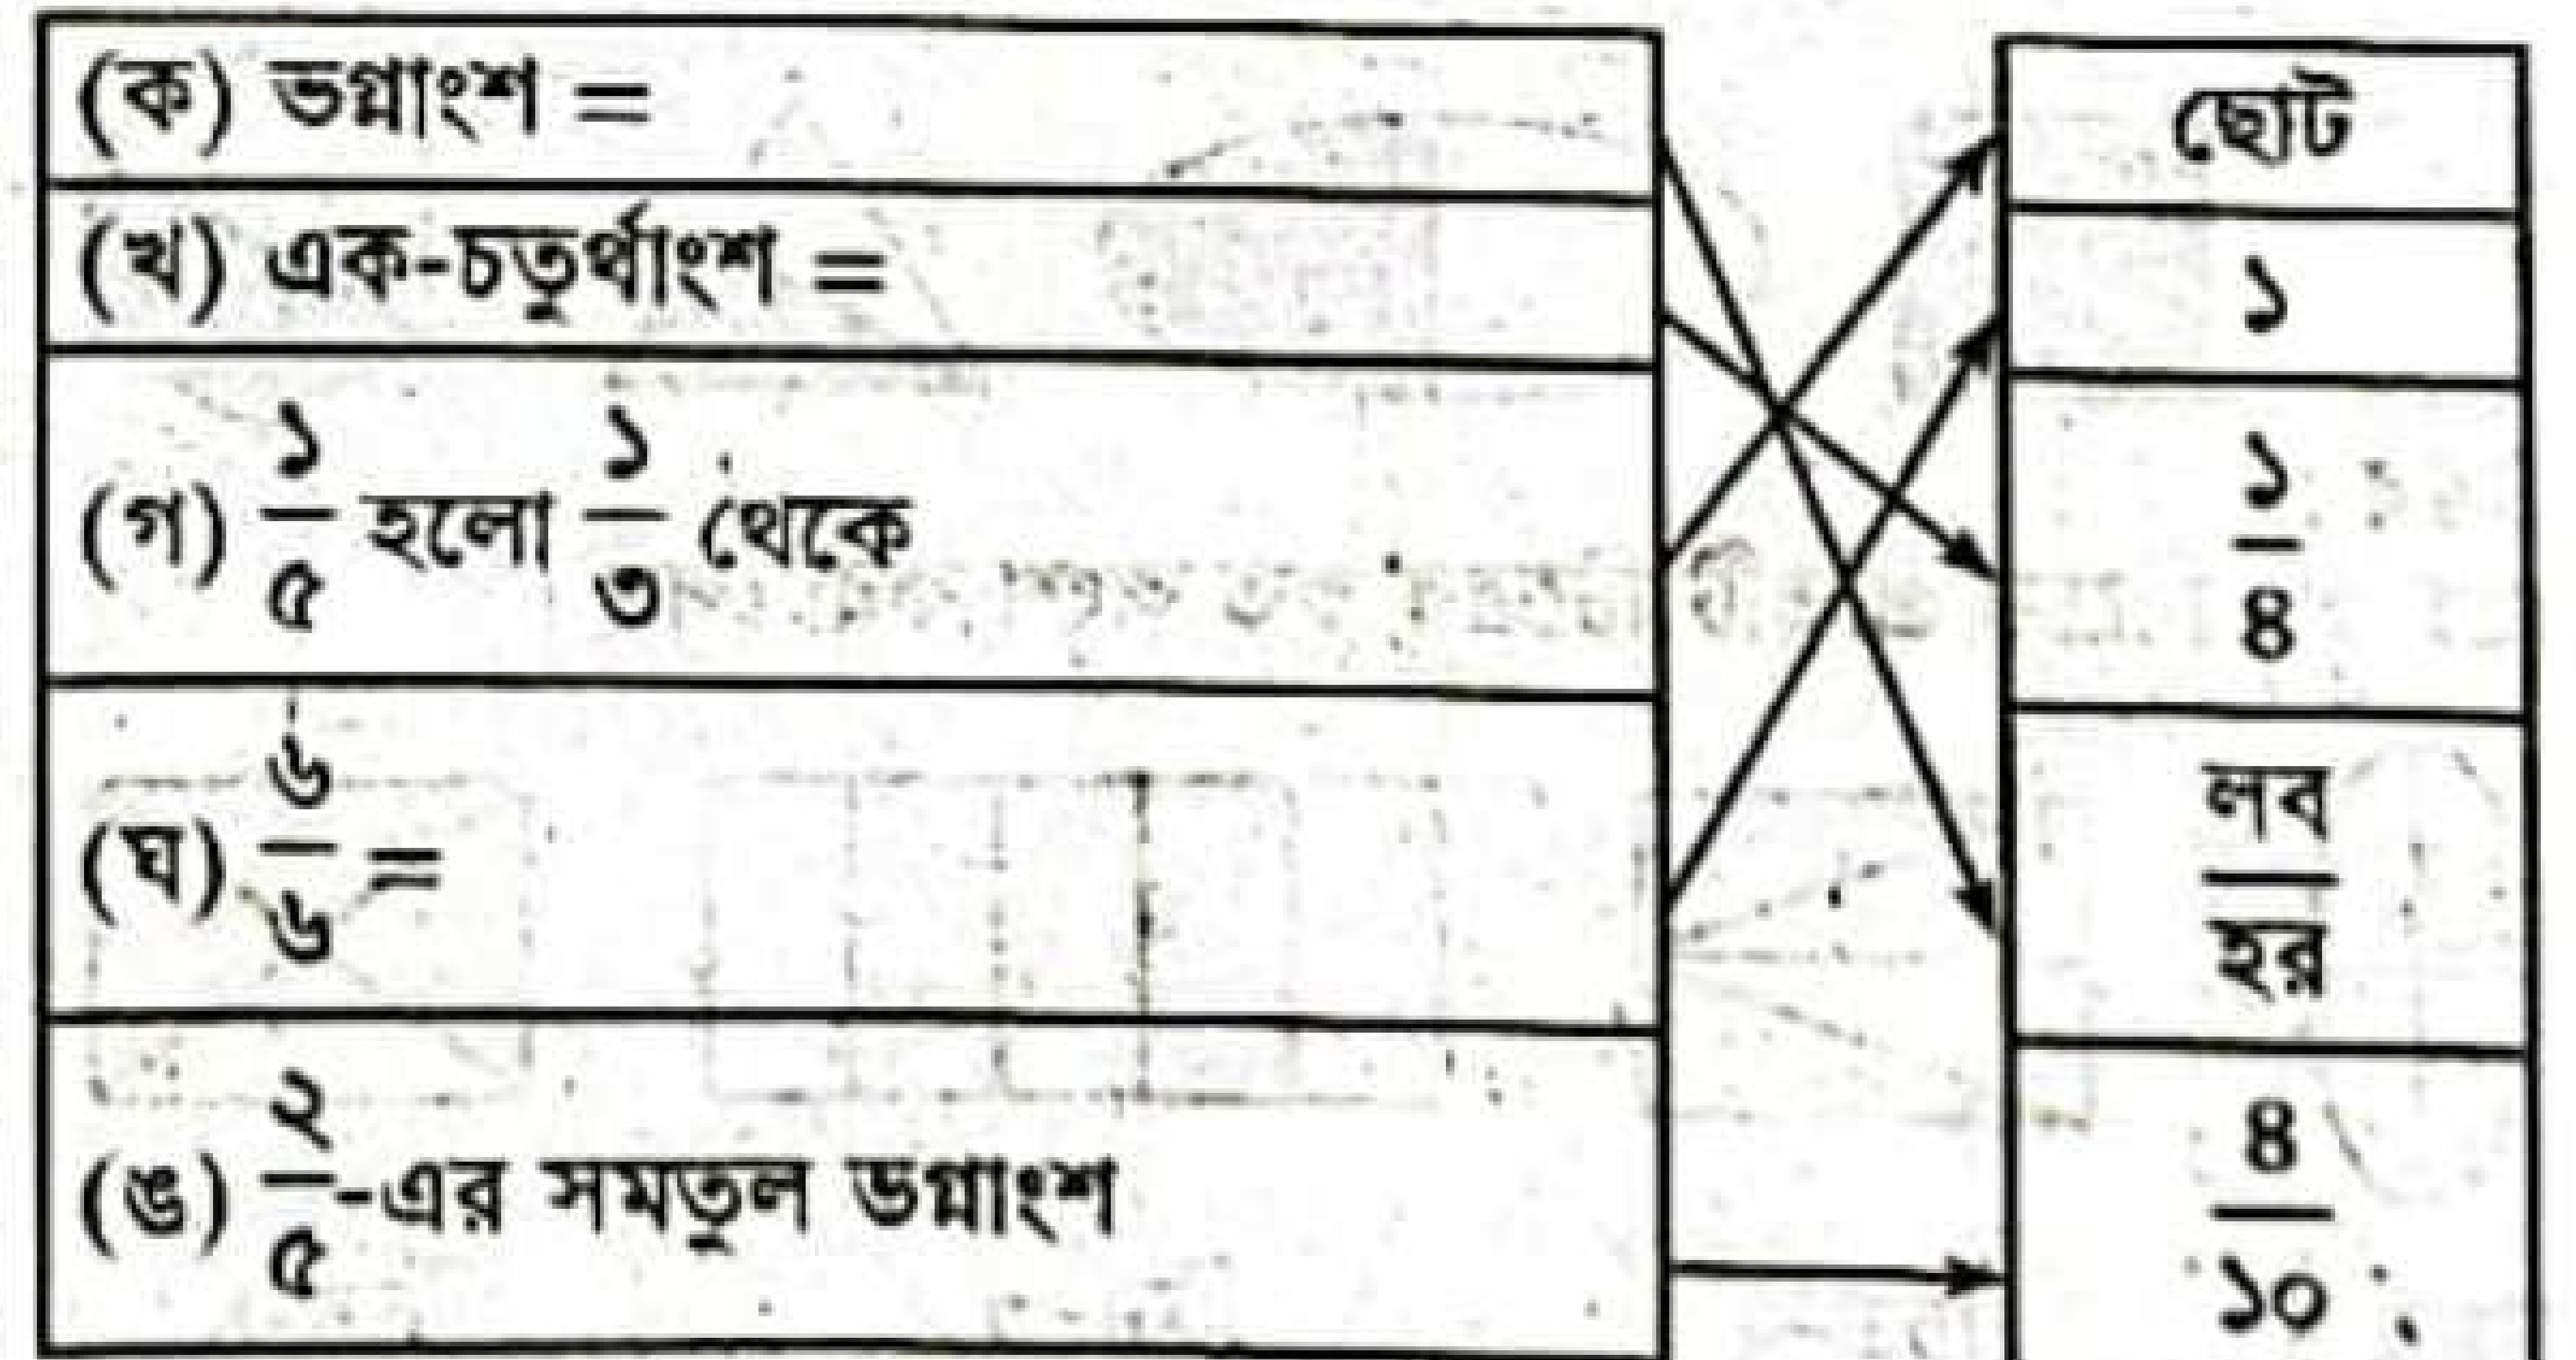 (ক) ভগ্নাংশ =
(খ) এক-চতুর্থাংশ =
(গ) ১/৫ হলো ১/৩ থেকে
(ঘ) ৬/৬ =
(ঙ) ২/৫-এর সমতুল ভগ্নাংশ
ছোট
১
১/৪
লব/হর
৪/১০